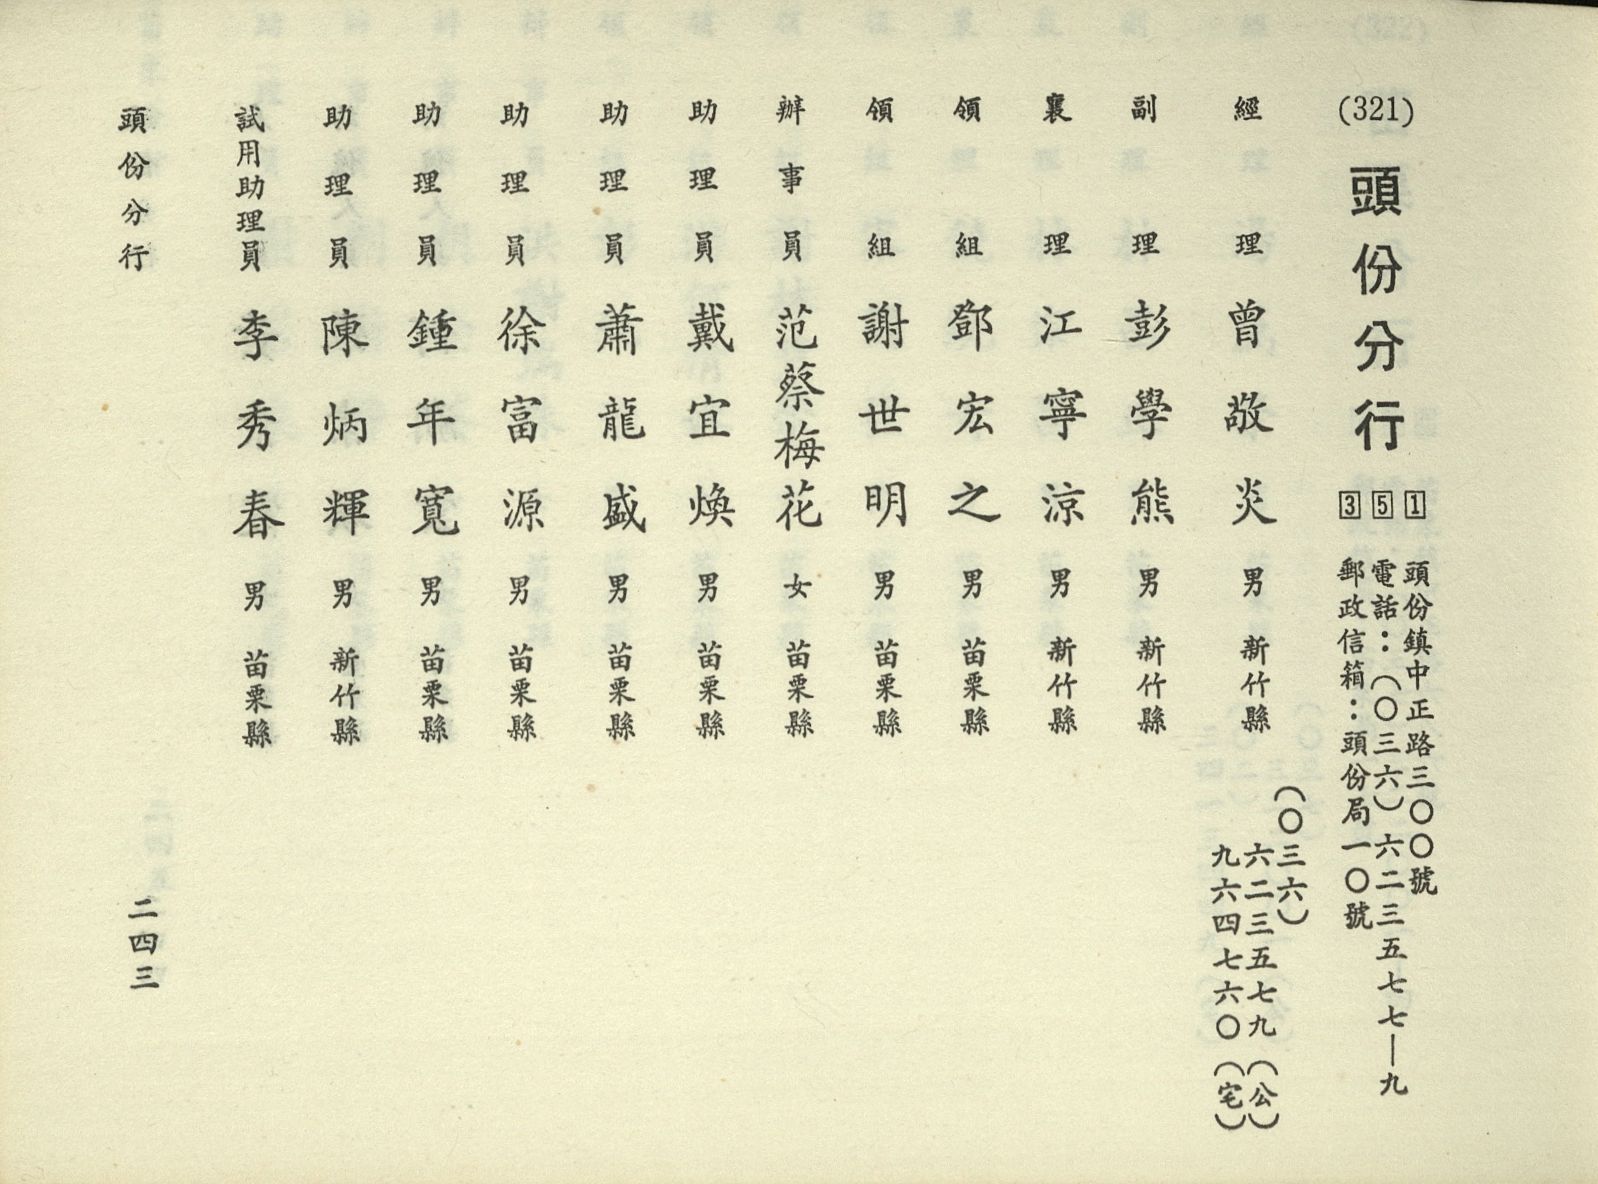 (321)
頭份分行
351
頭份鎮中正路三〇〇號
電話：（〇三六）六二三五七七—九
郵政信箱：頭份局一〇號
經理 曾敬炎 男 新竹縣
（〇三六）
六二三五七九（公）
九六四七六〇（宅）
副理 彭學熊 男 新竹縣
襄理 江寧涼 男 新竹縣
領組 鄧宏之 男 苗栗縣
領組 謝世明 男 苗栗縣
辦事員 范蔡梅花 女 苗栗縣
助理員 戴宜煥 男 苗栗縣
助理員 蕭龍盛 男 苗栗縣
助理員 徐富源 男 苗栗縣
助理員 鍾年寬 男 苗栗縣
助理員 陳炳輝 男 新竹縣
試用助理員 李秀春 男 苗栗縣
頭份分行
二四三